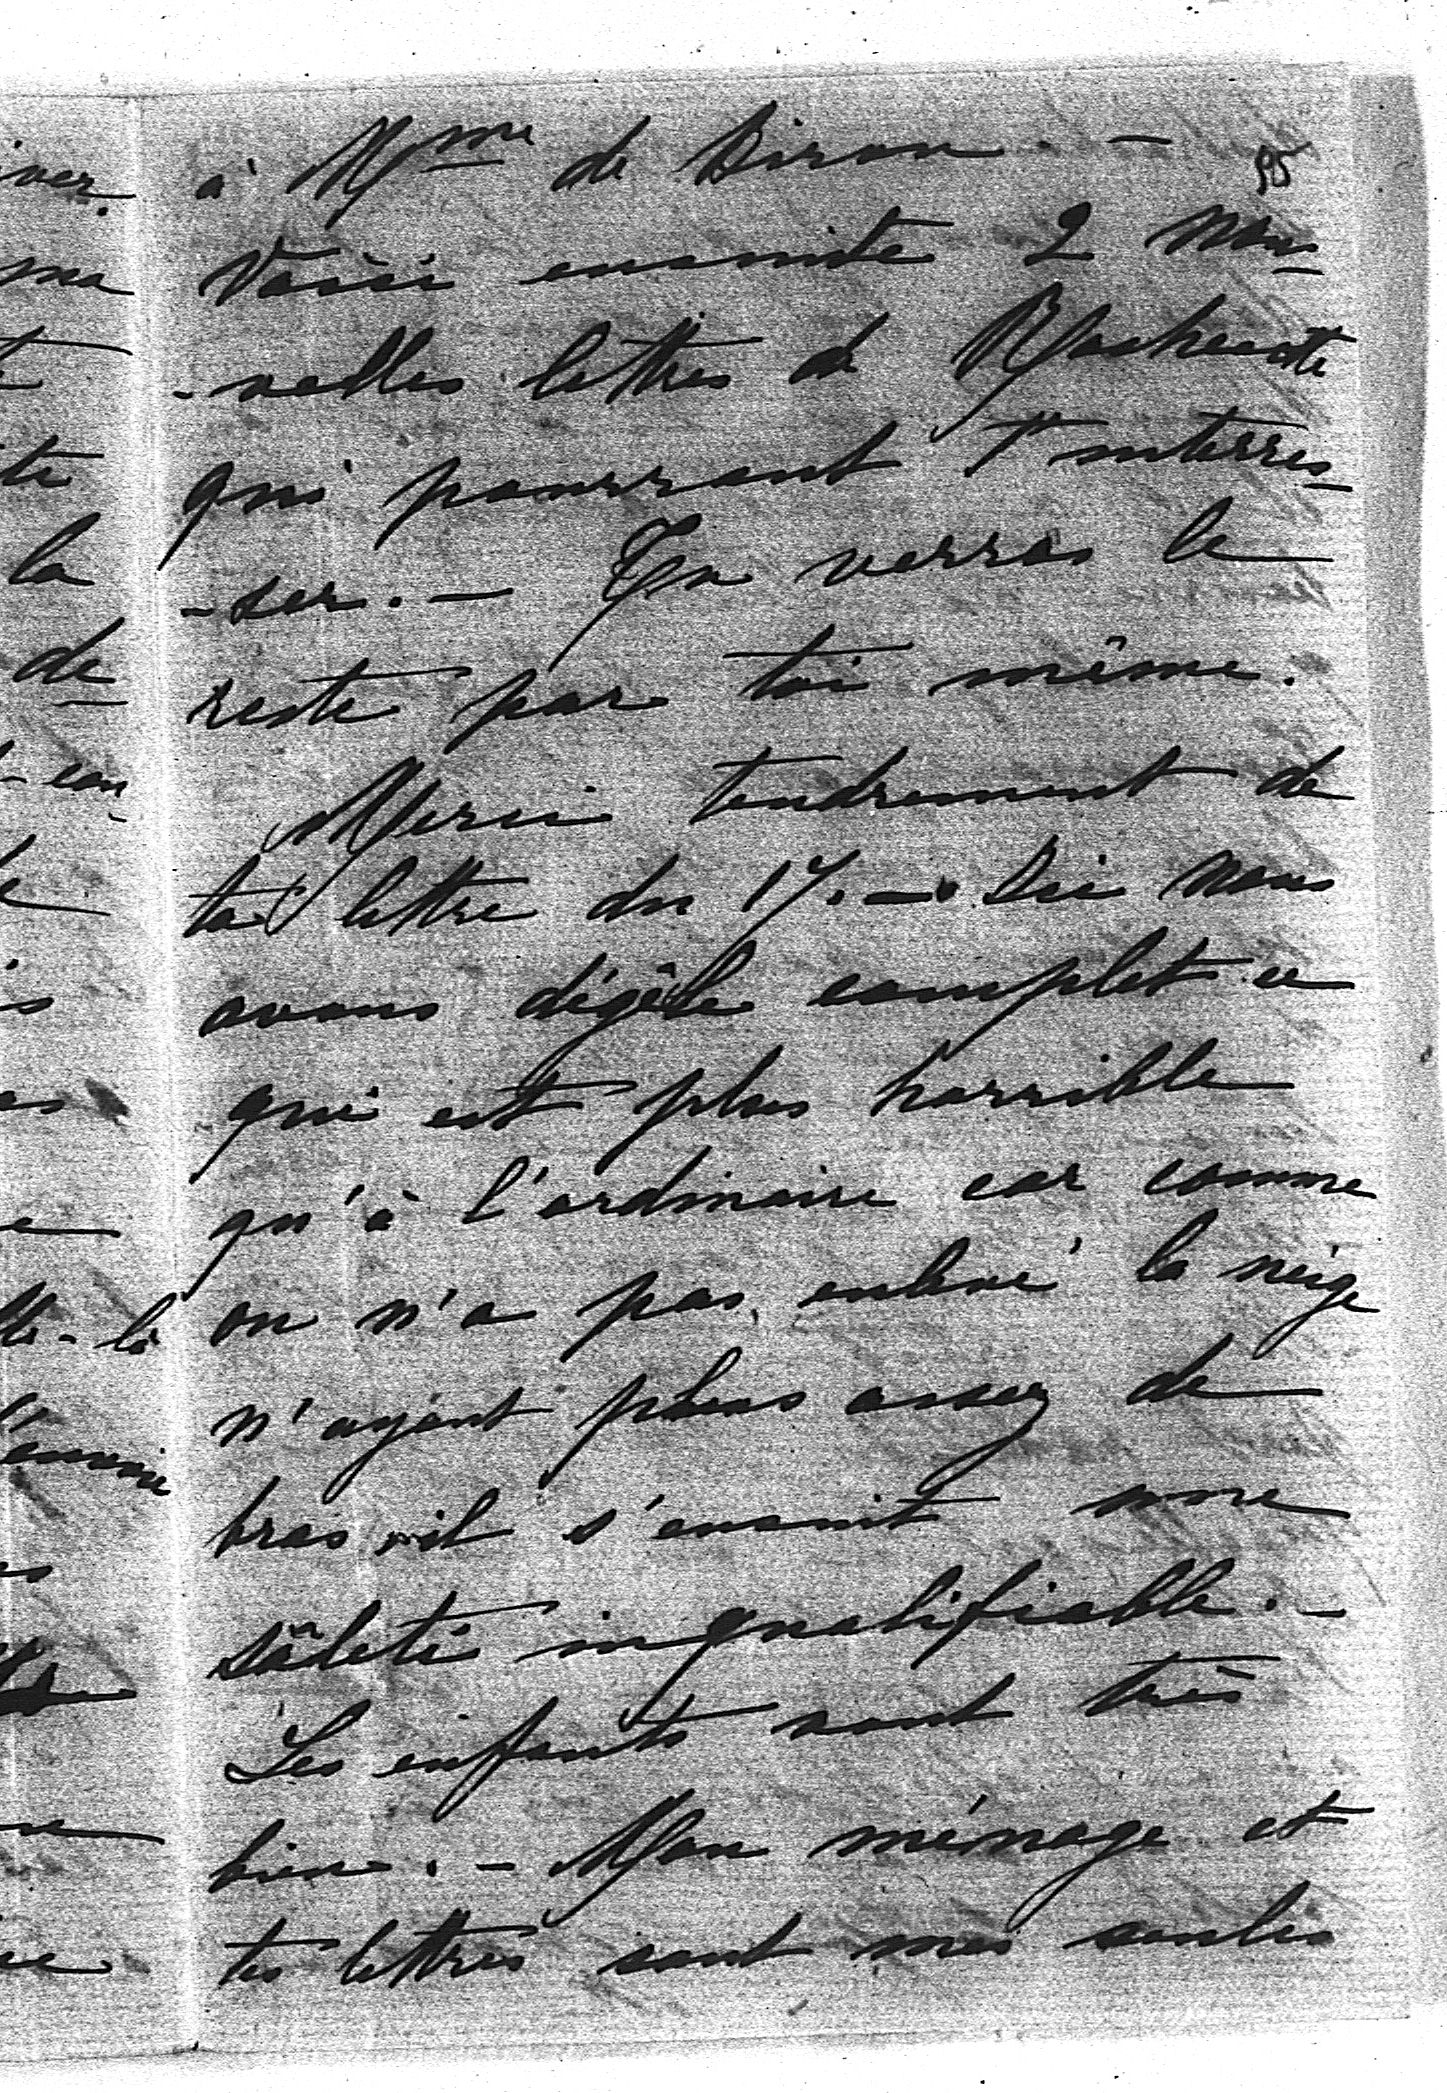 95
à Mme de Biron. —
Voici ensuite 2 nou-
-velles lettres de Rochecotte
qui pourront t'interres-
-ser. — Tu verras le
reste par toi même.
Merci tendrement de
ta lettre du 17. — Ici nous
avons dégêle complet ce
qui est plus horrible
qu'à l'ordinaire car comme
on n'a pas enlevé la neige
n'ayant plus assez de
bras, il s'ensuit une
sâleté inqualifiable. —
Les enfants vont très
bien. — Mon ménage et
tes lettres sont mes seules